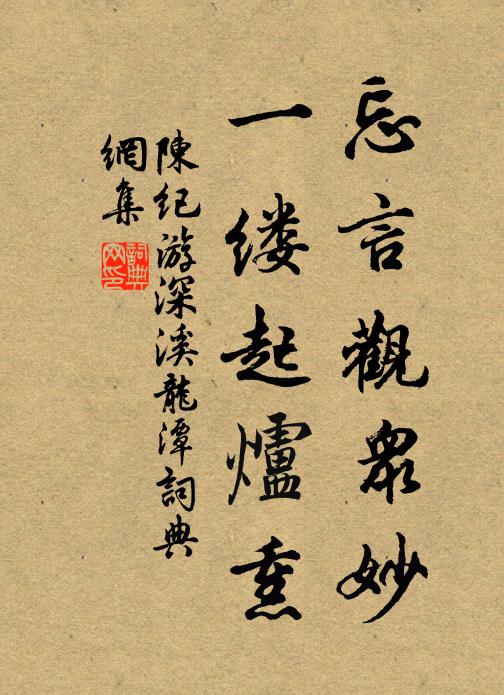 忘言觀衆妙
一缕起爐熏
陳紀游深溪龍潭詞典
網集
詞典
网印